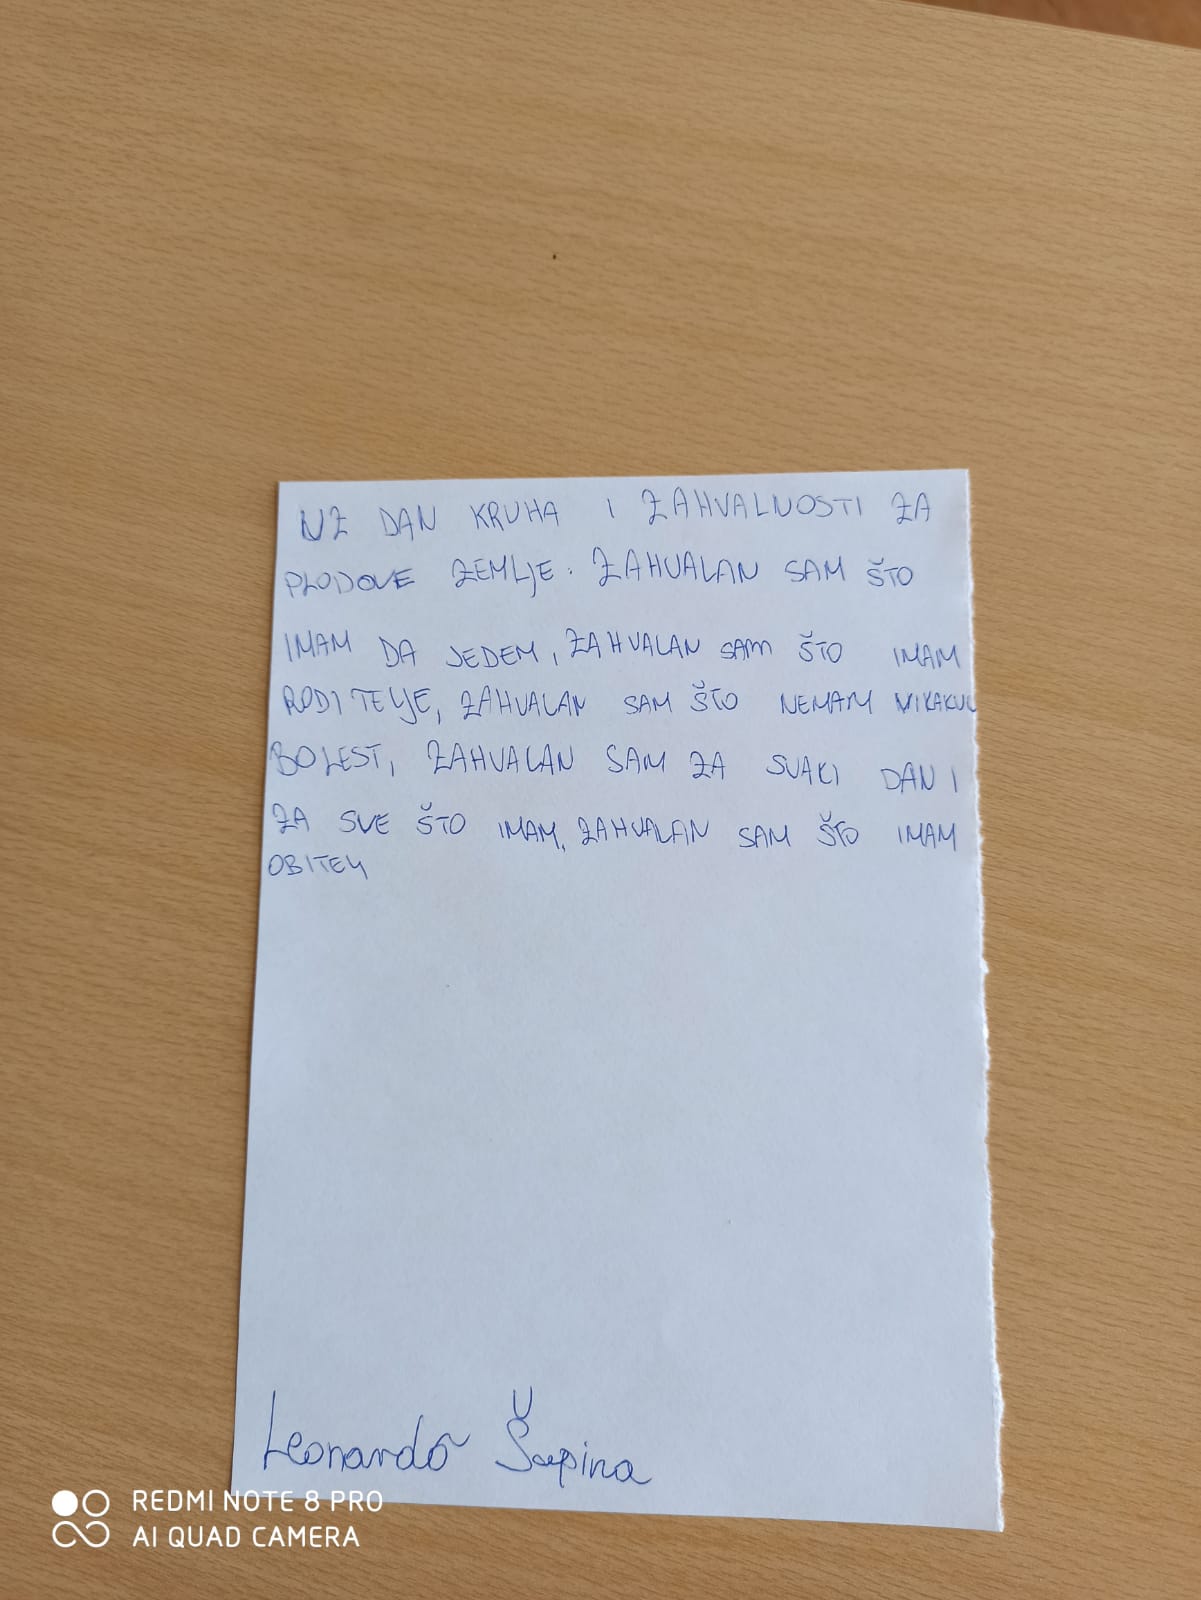 UZ DAN KRUHA I ZAHVALNOSTI ZA
PLODOVE ZEMLJE: ZAHVALAN SAM ŠTO
IMAM DA JEDEM, ZAHVALAN SAM ŠTO IMAM
RODITELJE, ZAHVALAN SAM ŠTO NEMAM NIKAKVU
BOLEST, ZAHVALAN SAM ZA SVAKI DAN I
ZA SVE ŠTO IMAM, ZAHVALAN SAM ŠTO IMAM
OBITELJ
Leonardo Šupina
REDMI NOTE 8 PRO
AI QUAD CAMERA